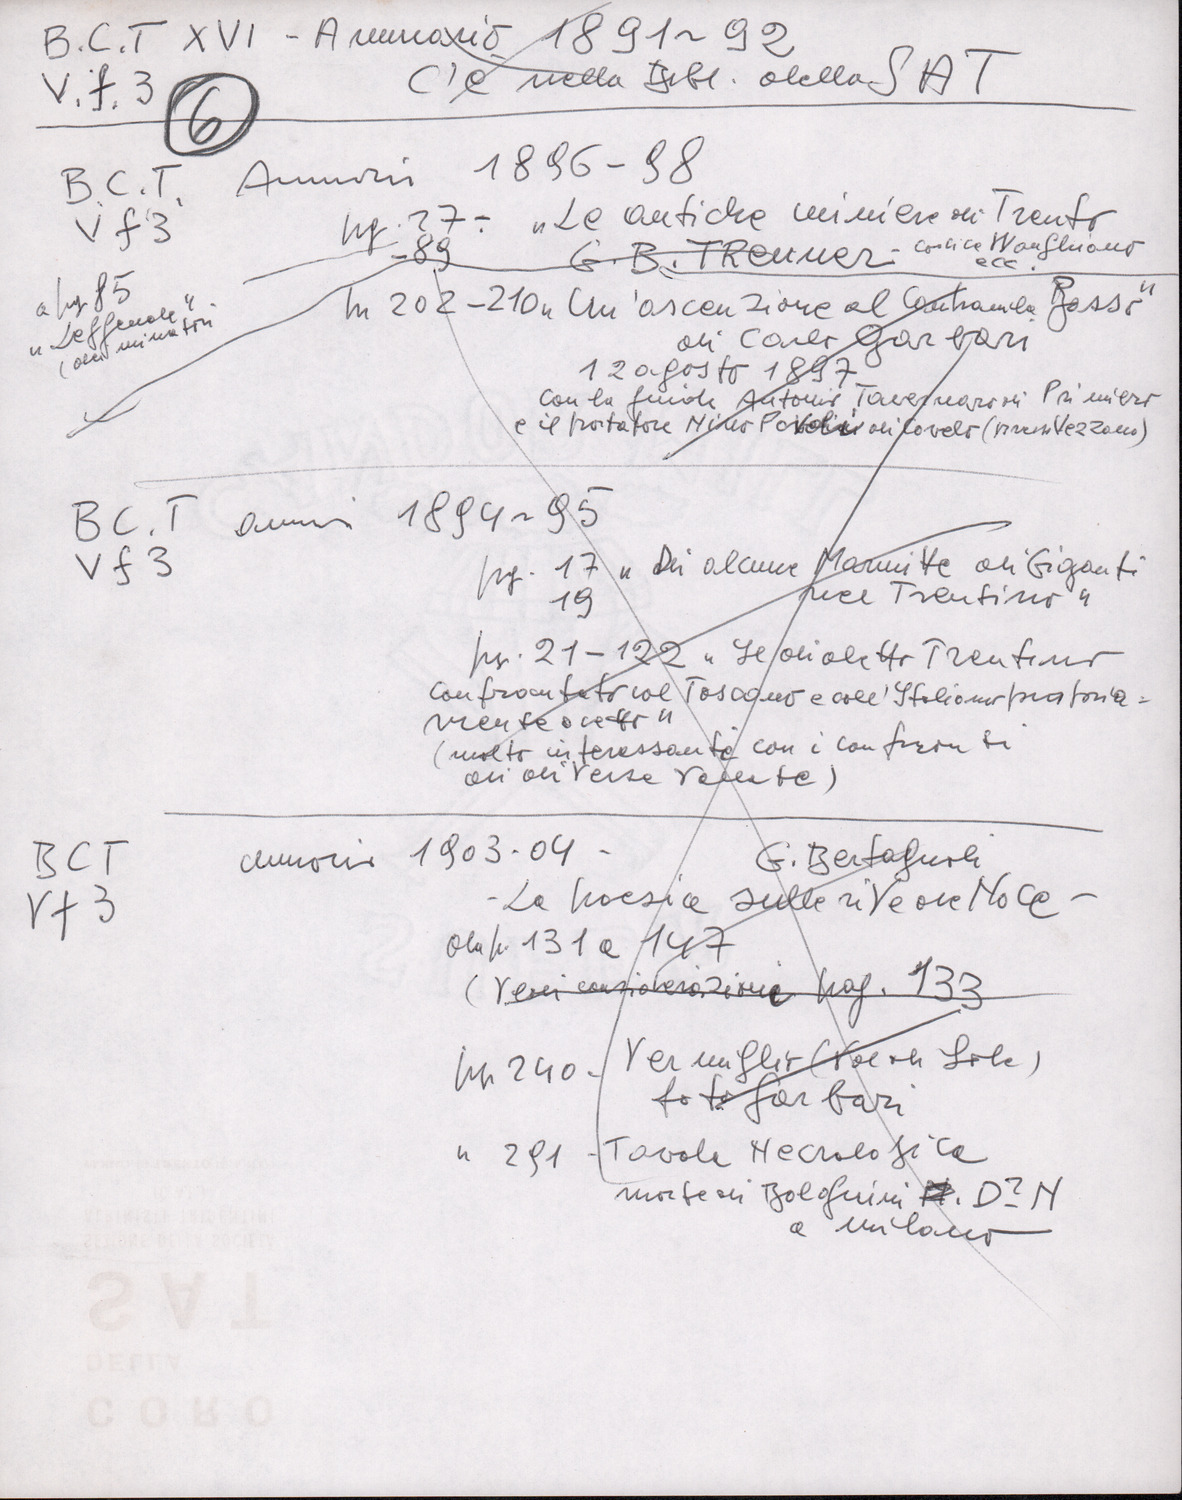 B.C.T XVI - Annuario 1891-92
V.f.3 C'è nella Bibl. della SAT
6
B.C.T. Annuario 1896-98
V f 3 pg. 27- "Le antiche miniere di Trento
-89 G.B. TRenner - codice Wanghiano
ecc.
a pg 85
"Leggende"
(dei minatori
In 202-210 "Un'ascenzione al Basso"
di Carlo Garbari
12 agosto 1897
con la guida Antonio Tavernaro di Primiero
e il portatore Nino Povoli di Covelo (Vezzano)
B C.T annuario 1894-95
V f 3 pg. 17 "Di alcune Marmitte di Giganti
19 nel Trentino"
pg. 21-122 "Il dialetto Trentino
confrontato col Toscano e coll'Italiano propria=
mente detto"
(molto interessante con i confronti
di diverse vallate)
BCT annuario 1903-04 - G. Bertagnolli
Vf3 - La poesia sulle rive del Noce -
da p. 131 a 147
(Vedi considerazioni pag. 133
pg 240 - Vermiglio (Val di Sole)
foto Garbari
" 291 - Tavola Necrologica
morte di Bolognini N. D? N
a Milano
SAT
DELLA
CORO